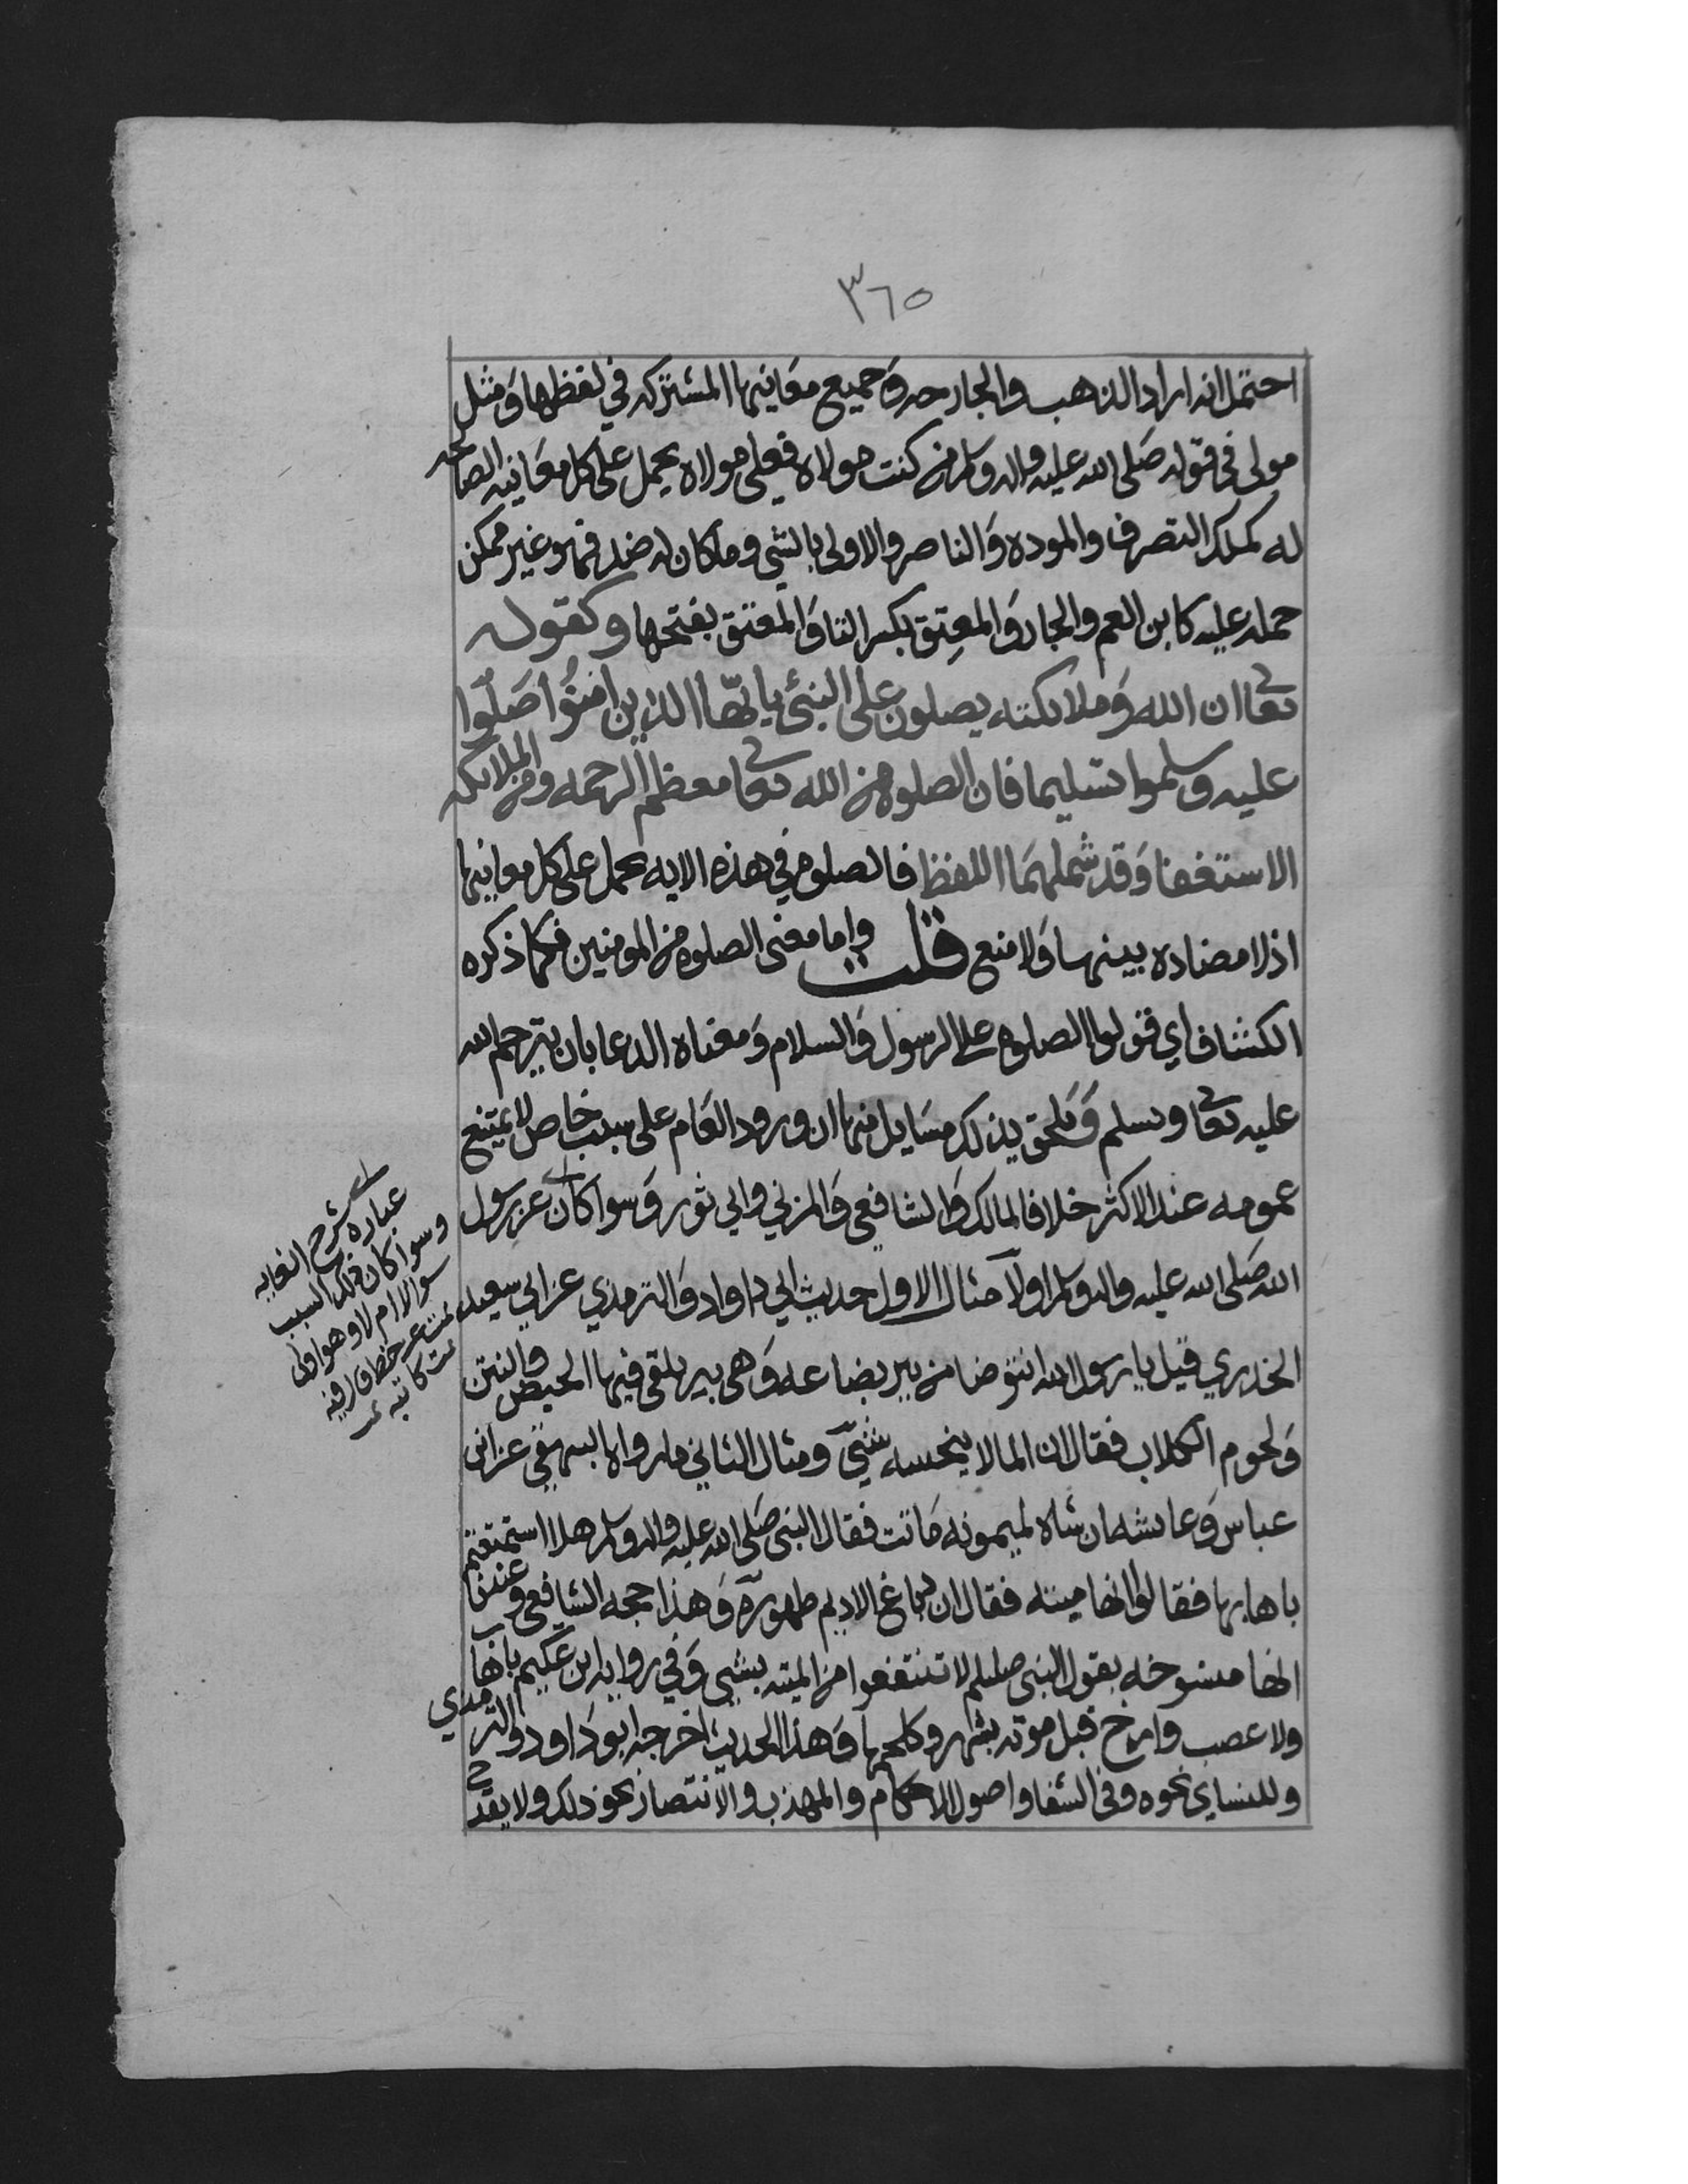 ٣٦٥
احتمل انه اراد الذهب والجارحه وَجميع معَانيها المشتركه في لفظها وَمثل
مولى في قوله صَلى الله عليه واله وسلم من كنت مولاه فعلي مولاه يحمل على كل معَانيه الصالحه
له كملك التصرف والموده وَالناصر والاولى بالشي وما كان له ضد فهو غير ممكن
حمله عليه كابن العم والجار وَالمعتِق بكسر التا وَالمعتق بفتحها وكقوله
تعا ان الله وَملائكته يصلون على النبي يا ايّها الذين امنُوا صَلّوا
عليه وسلموا تسليما فان الصلوه من الله تعا معظم الرحمه ومن الملائكه
الاستغفا وَقد شملهمَا اللفظ فالصلوه في هذه الايه يحمل على كل معانيها
اذ لا مضاده بينها وَلا منع قلت واما معنى الصلوه من المومنين فكما ذكره
الكشاف اي قولوا الصلوه على الرسول وَالسلام وَمعناه الدعا بان يترحم الله
عليه تعا وسلم وَيلحق بذلك مسَايل منها ان ورود العَام على سبب خاص لا يمتنع
عمومه عند الاكثر خلافا لمالك وَالشافعي وَالمزني وابي ثور وَسوا كان عن رسول
الله صَلى الله عليه واله وسلم اولا مثال الاول حديث ابي داواد وَالترمذي عن ابي سعيد
الخدري قيل يا رسول الله انتوضا من بير بضاعه وَهي بير يلقى فيها الحيض والنتن
وَلحوم الكلاب فقال ان الما لا ينجسه شيّ ومثال الثاني ما رواه البيهقي عن ابن
عباس وَعايشه ان شاه لميمونه مَاتت فقال النبي صَلى الله عليه واله وسلم هلا استمتعتم
باهابها فقالوا انها ميته فقال ان دباغ الاديم طهوره وَهذا حجه الشافعي وعندنا
انها منسوخه بقول النبي صللم لا تنتفعوا من الميته بشي وَفي روايه ابن عكيم باهاب
ولا عصب وارخ قبل موته بشهر وَهذا الحديث اخرجه ابو دَاود والترمذي
وللنساي نحوه وفي الشفا واصول الاحكام والمهذب والانتصار نحو ذلك ولا يقد
عباره شرح الغايه
وسوا كان ذلك السبب
سوالا ام لا وهو اولى
تمت
كاتبه